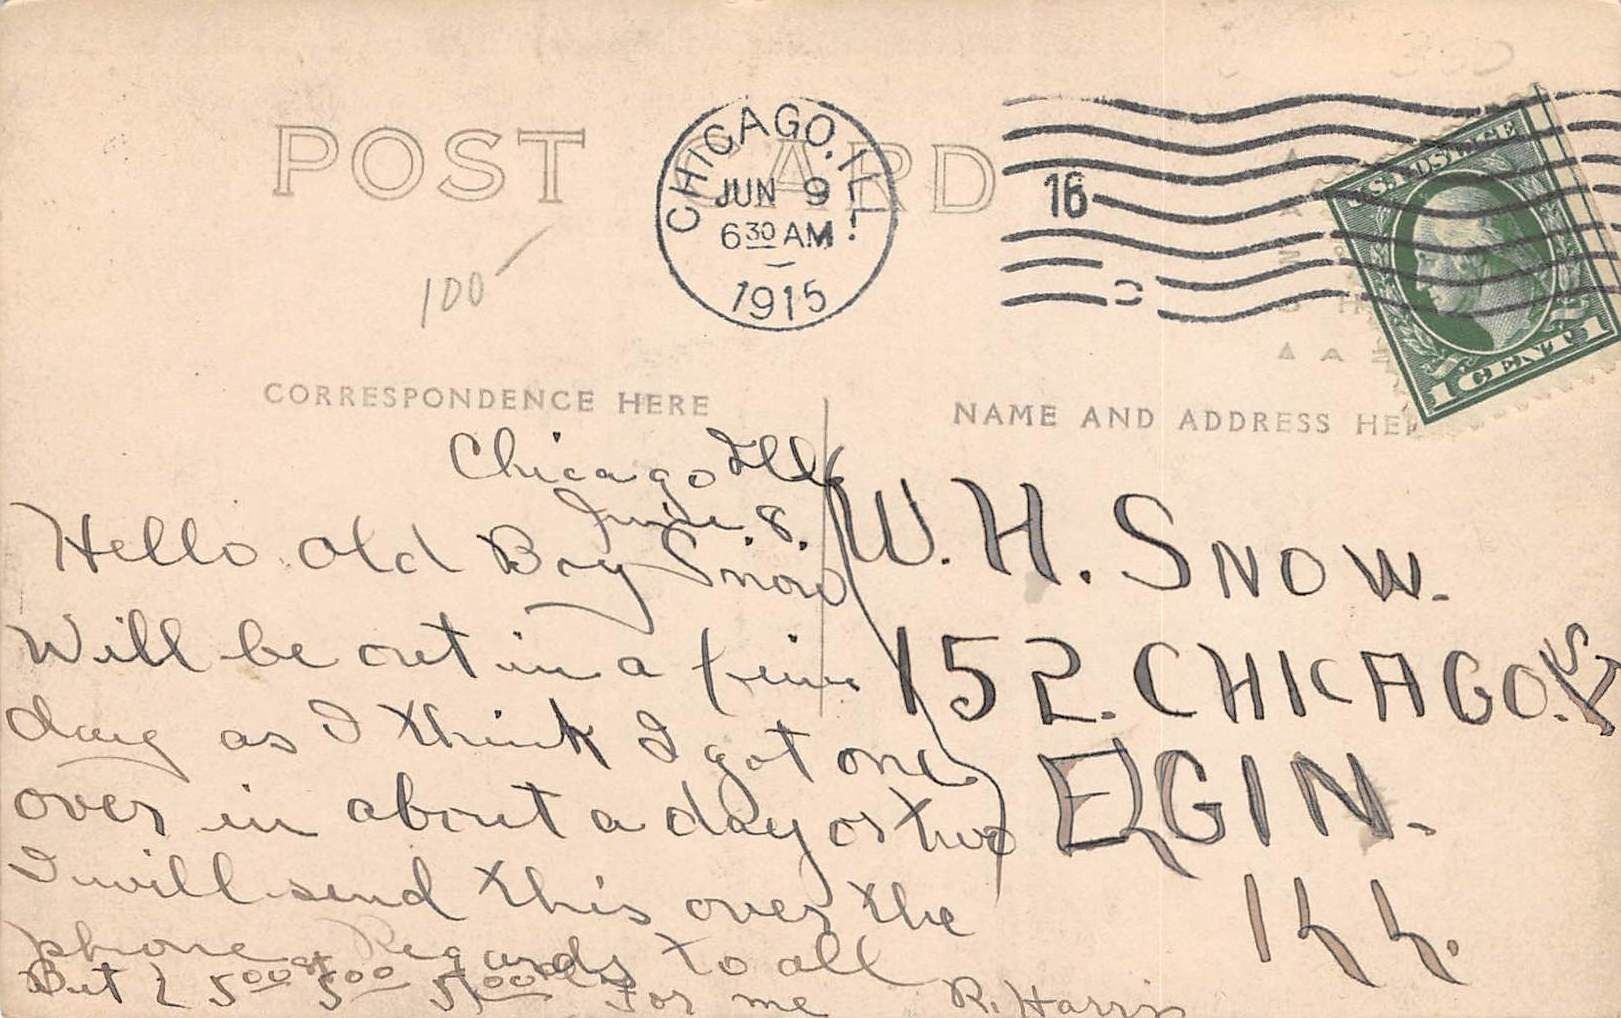 POST CARD
CHICAGO, ILL.
JUN 9
6 30 AM
1915
16
1 CENT 1
100
CORRESPONDENCE HERE
NAME AND ADDRESS HE
Chicago Ill
June. 8.
Hello Old Boy Snow
Will be out in a few
day as I think I got one
over in about a day or two
I will send this over the
phone Regards to all
But 5 00 5 00 5 00 for me R. Harris
W. H. SNOW.
152. CHICAGO. ST
ELGIN.
ILL.